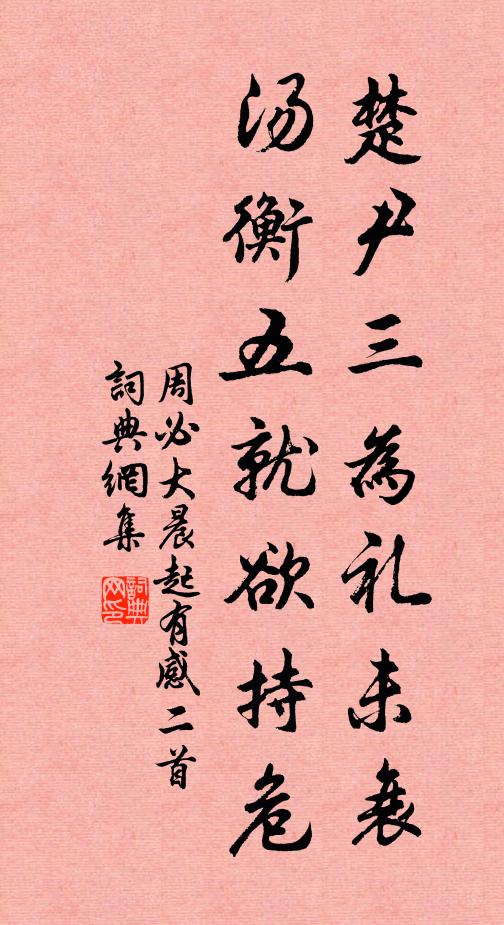 楚尹三為礼未衰
汤衡五就欲持危
周必大晨起有感二首
詞典網集
詞典网印